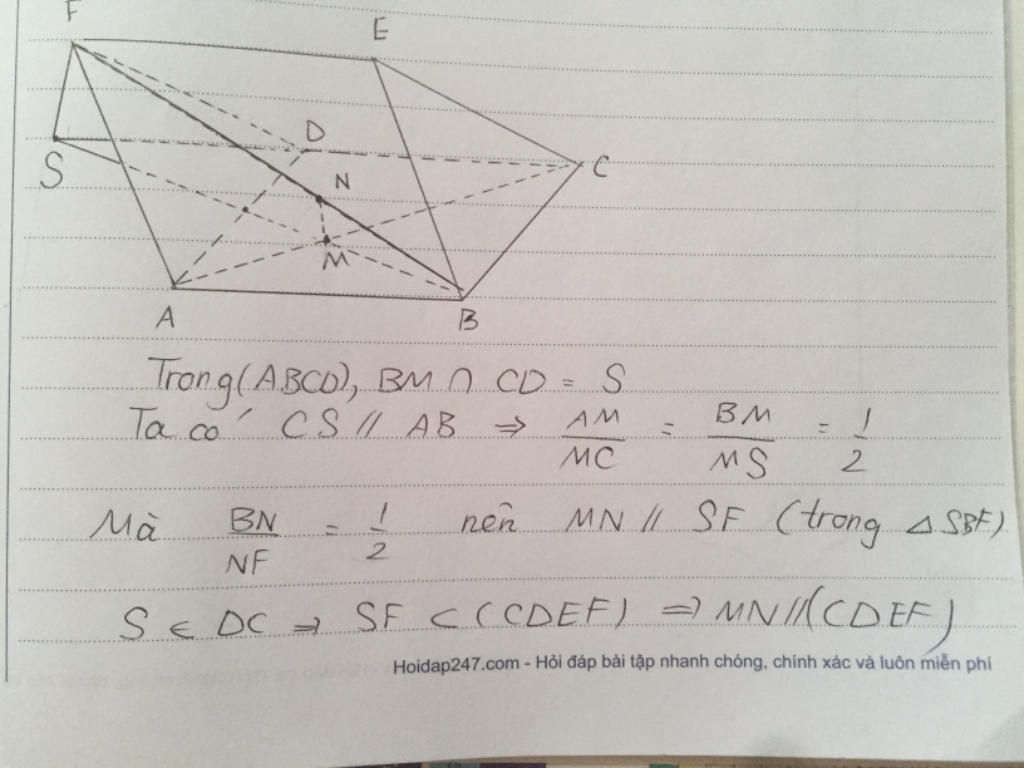 F
E
D
S
C
N
M
A
B
Trong (ABCD), BM ∩ CD = S
Ta có CS // AB ⇒ AM/MC = BM/MS = 1/2
Mà BN/NF = 1/2 nên MN // SF (trong △SBF)
S ∈ DC ⇒ SF ⊂ (CDEF) ⇒ MN//(CDEF)
Hoidap247.com - Hỏi đáp bài tập nhanh chóng, chính xác và luôn miễn phí